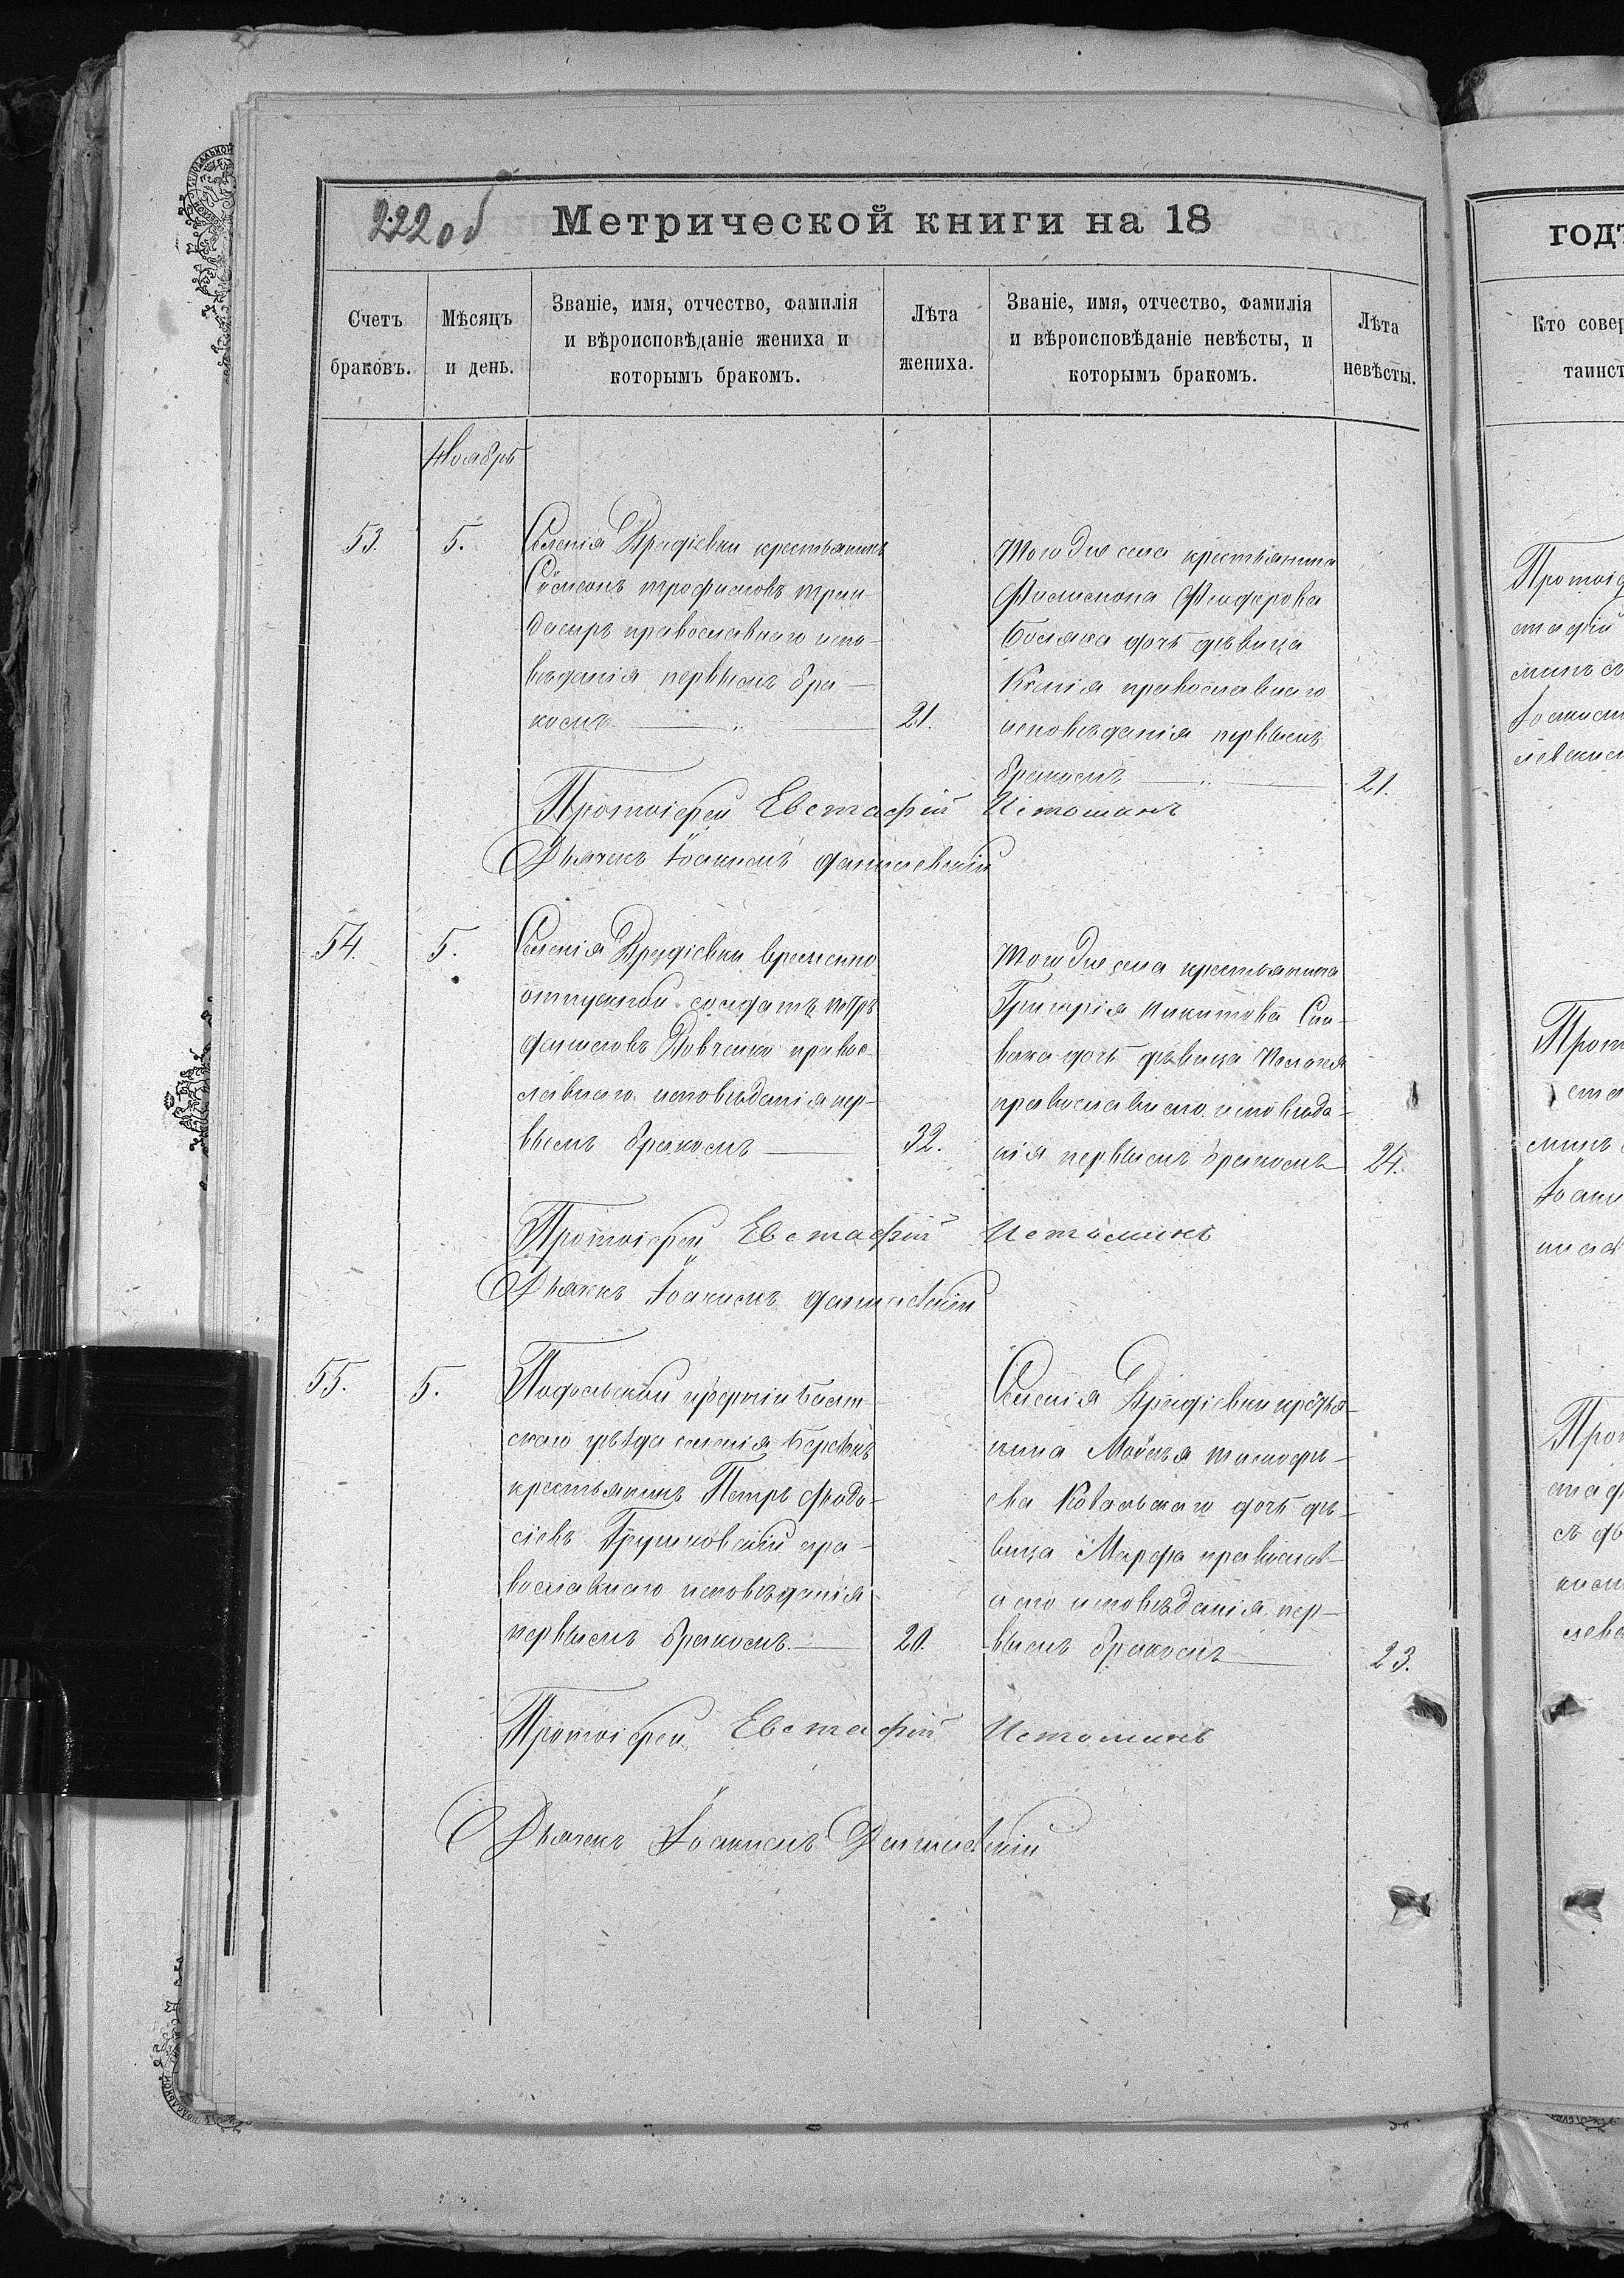 222об
Метрической книги на 18
Счетъ браковъ.
Мѣсяцъ и день.
Званіе, имя, отчество, фамилія
и вѣроисповѣданіе жениха и
которымъ бракомъ.
Лѣта жениха.
Званіе, имя, отчество, фамилія
и вѣроисповѣданіе невѣсты, и
которымъ бракомъ.
Лѣта невѣсты.
Ноябрь
53.
5.
Селенія Врадіевки крестьянинъ
Сѵмеонъ Трофимовъ
православнаго испо-
вѣданія первымъ бра-
комъ
21.
Тогоже села крестьянина
Филимона
Босяка дочь дѣвица
Ксенія православнаго
исповѣданія первымъ
бракомъ
21.
Протоіерей Евстафій Истоминъ
Дьячекъ Іоакимъ Данилевскій
54.
5.
Селенія Врадіевки временно
отпускной солдатъ Петръ
Даниловъ Вовченко правос-
лавнаго исповѣданія пер-
вымъ бракомъ
32.
Тогоже села крестьянина
Григорія Никитова Спи-
вака дочь дѣвица Пелагея
православнаго исповѣда-
нія первымъ бракомъ
24.
Протоіерей Евстафій Истоминъ
Дьячекъ Іоакимъ Данилевскій
55.
5.
Подольской губерніи Балт-
скаго уѣзда селенія
крестьянинъ Петръ Феодо-
сіевъ пра-
вославнаго исповѣданія
первымъ бракомъ
20.
Селенія Врадіевки крестья-
нина Моѵсея Тимофѣ-
ева Ковальскаго дочь дѣ-
вица Марфа православ-
наго исповѣданія пер-
вымъ бракомъ
23.
Протоіерей Евстафій Истоминъ
Дьячекъ Іоакимъ Данилевскій
годъ
Кто совер
таинст